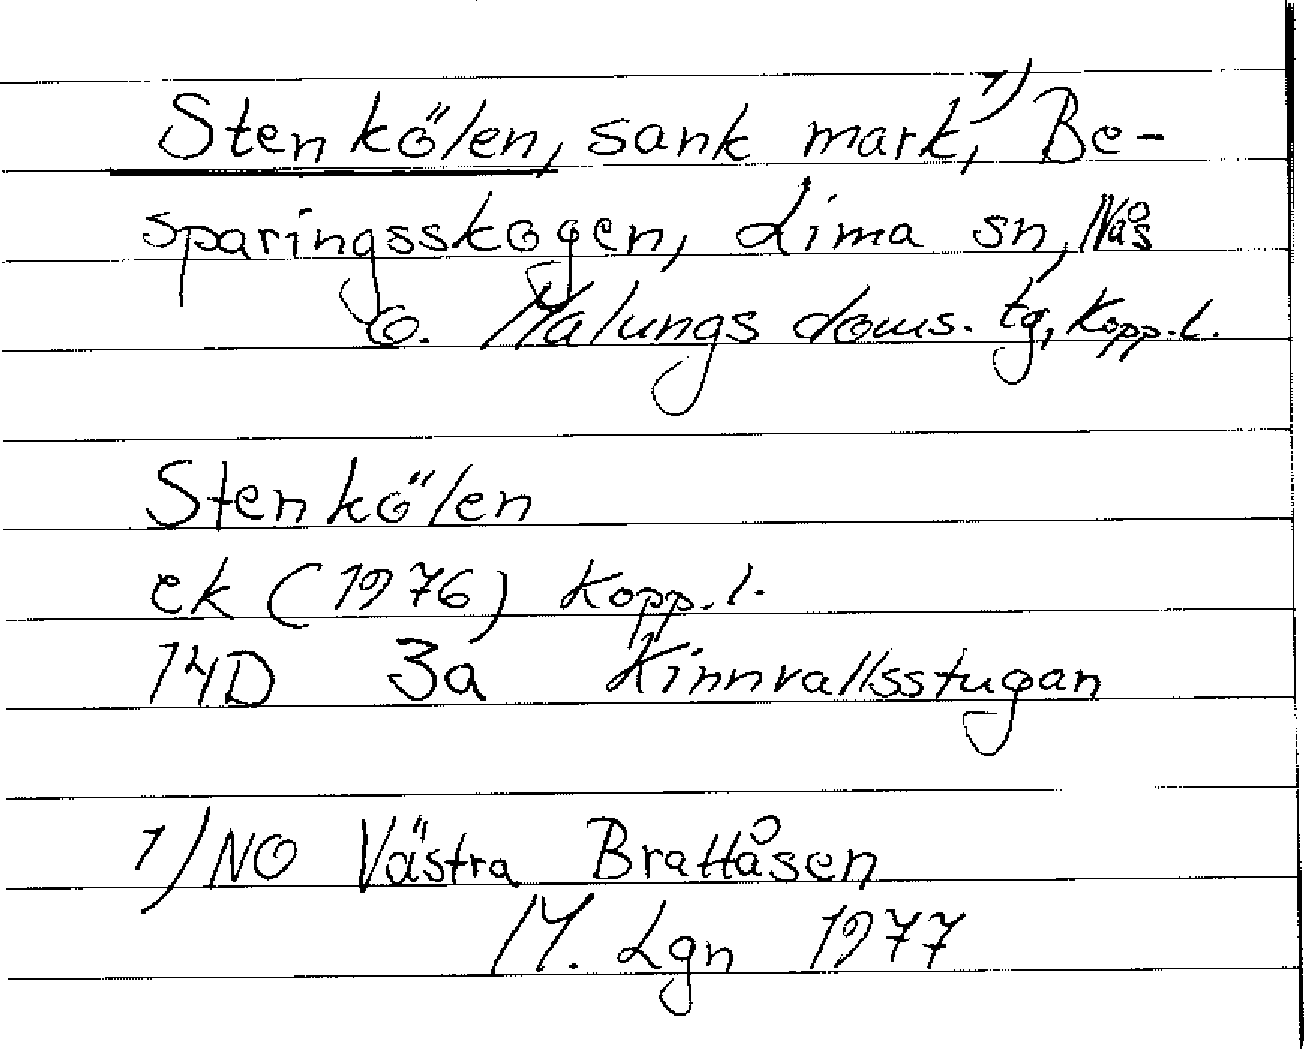 Stenkölen, sank mark,¹⁾ Be-
sparingsskogen, Lima sn, Nås
o. Malungs doms. tg, Kopp. l.
Stenkölen
ek (1976) Kopp. l.
14D 3a Kinnvallsstugan
1) NO Västra Brattåsen
M. Lgn 1977